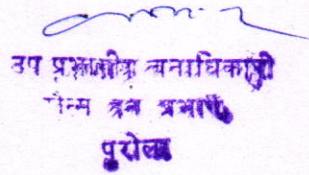 उप प्रभागीय वनाधिकारी
टौन्स वन प्रभाग
पुरोला